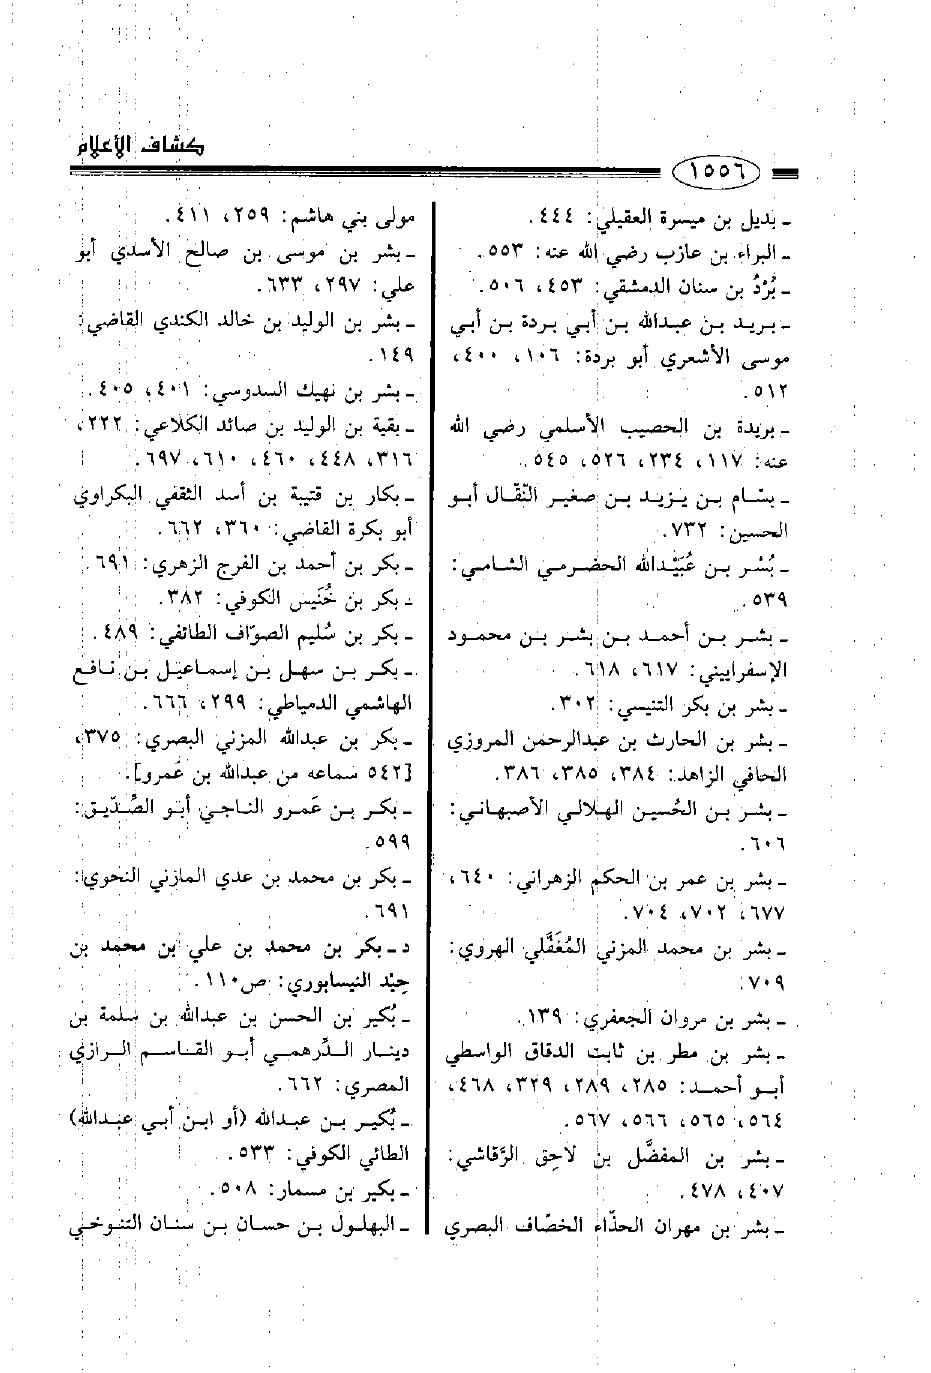 كشاف الأعلام
١٥٥٦
ـ بديل بن ميسرة العقيلي: ٤٤٤.
ـ البراء بن عازب رضي الله عنه: ٥٥٣.
ـ بُرْدُ بن سنان الدمشقي: ٤٥٣، ٥٠٦.
ـ بريد بن عبدالله بن أبي بردة بن أبي
موسى الأشعري أبو بردة: ١٠٦، ٤٠٠،
٥١٢.
ـ بريدة بن الحصيب الأسلمي رضي الله
عنه: ١١٧، ٢٣٤، ٥٢٦، ٥٤٥.
ـ بسّام بن يزيد بن صغير النّقال أبو
الحسين: ٧٣٢.
ـ بُسْر بن عُبَيْدالله الحضرمي الشامي:
٥٣٩.
ـ بشر بن أحمد بن بشر بن محمود
الإسفراييني: ٦١٧، ٦١٨.
ـ بشر بن بكر التنيسي: ٣٠٢.
ـ بشر بن الحارث بن عبدالرحمن المروزي
الحافي الزاهد: ٣٨٤، ٣٨٥، ٣٨٦.
ـ بشر بن الحُسين الهلالي الأصبهاني:
٦٠٦.
ـ بشر بن عمر بن الحكم الزهراني: ٦٤٠،
٦٧٧، ٧٠٢، ٧٠٤.
ـ بشر بن محمد المزني المُغَفَّلي الهروي:
٧٠٩.
ـ بشر بن مروان الجعفري: ١٣٩.
ـ بشر بن مطر بن ثابت الدقاق الواسطي
أبو أحمد: ٢٨٥، ٢٨٩، ٣٢٩، ٤٦٨،
٥٦٤، ٥٦٥، ٥٦٦، ٥٦٧.
ـ بشر بن المفضَّل بن لاحِق الرَّقاشي:
٤٠٧، ٤٧٨.
ـ بشر بن مهران الحذّاء الخصّاف البصري
مولى بني هاشم: ٢٥٩، ٤١١.
ـ بشر بن موسى بن صالح الأسدي أبو
علي: ٢٩٧، ٦٣٣.
ـ بشر بن الوليد بن خالد الكندي القاضي:
١٤٩.
ـ بشر بن نهيك السدوسي: ٤٠١، ٤٠٥.
ـ بقية بن الوليد بن صائد الكلاعي: ٢٢٢،
٣١٦، ٤٤٨، ٤٦٠، ٦١٠، ٦٩٧.
ـ بكار بن قتيبة بن أسد الثقفي البكراوي
أبو بكرة القاضي: ٣٦٠، ٦٦٢.
ـ بكر بن أحمد بن الفرج الزهري: ٦٩١.
ـ بكر بن خُنَيس الكوفي: ٣٨٢.
ـ بكر بن سُليم الصوّاف الطائفي: ٤٨٩.
ـ بكر بن سهل بن إسماعيل بن نافع
الهاشمي الدمياطي: ٢٩٩، ٦٦٦.
ـ بكر بن عبدالله المزني البصري: ٣٧٥،
[٥٤٢ سماعه من عبدالله بن عَمرو].
ـ بكر بن عَمرو الناجي أبو الصِّدّيق:
٥٩٩.
ـ بكر بن محمد بن عدي المازني النحوي:
٦٩١.
د ـ بكر بن محمد بن علي بن محمد بن
حِيْد النيسابوري: ص١١٠.
ـ بُكير بن الحسن بن عبدالله بن سَلمة بن
دينار الدِّرهمي أبو القاسم الرازي
المصري: ٦٦٢.
ـ بُكير بن عبدالله (أو ابن أبي عبدالله)
الطائي الكوفي: ٥٣٣.
ـ بكير بن مسمار: ٥٠٨.
ـ البهلول بن حسان بن سنان التنوخي